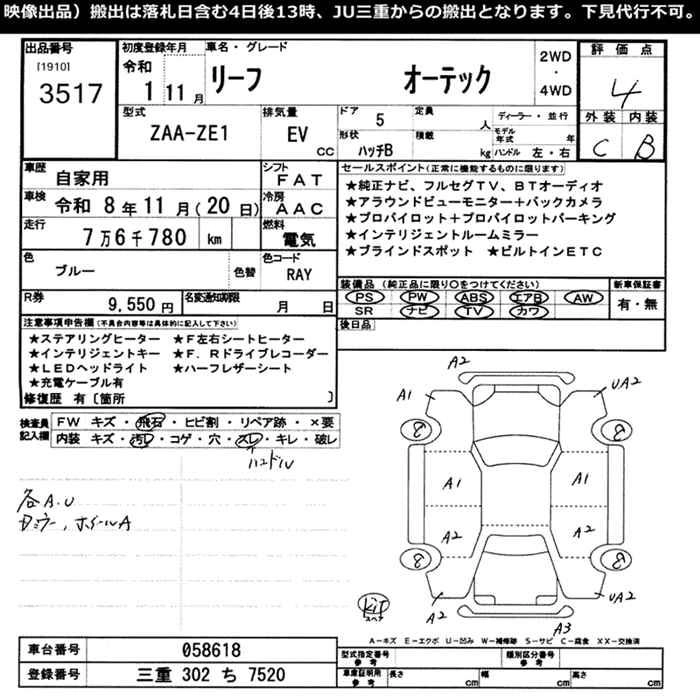 映像出品）搬出は落札日含む4日後13時、JU三重からの搬出となります。下見代行不可。
出品番号
[1910]
3517
初度登録年月
令和
1 11 月
車名・グレード
リーフ オーテック
2WD
・
4WD
評価点
4
外装 内装
C B
型式
ZAA-ZE1
排気量
EV
CC
ドア
5
定員
人
ディーラー・並行
モデル年式 年
形状
ハッチB
積載
kg
ハンドル 左・右
車歴
自家用
シフト
FAT
車検
令和 8年11月(20日)
冷房
AAC
走行
7万6千780 km
燃料
電気
色
ブルー
色替
色コード
RAY
R券
9,550円
名変通知期限
月 日
セールスポイント(正常に機能するものに限ります)
★純正ナビ、フルセグTV、BTオーディオ
★アラウンドビューモニター+バックカメラ
★プロパイロット+プロパイロットパーキング
★インテリジェントルームミラー
★ブラインドスポット ★ビルトインETC
装備品(純正品に限り〇をつけてください)
PS PW ABS エアB AW
SR ナビ TV カワ
新車保証書
有・無
後日品
注意事項申告欄(不具合内容等は具体的に記入して下さい)
★ステアリングヒーター ★F左右シートヒーター
★インテリジェントキー ★F.Rドライブレコーダー
★LEDヘッドライト ★ハーフレザーシート
★充電ケーブル有
修復歴 有〔箇所 〕
検査員記入欄
FW キズ・飛石・ヒビ割・リペア跡・×要
内装 キズ・汚レ・コゲ・穴・スレ・キレ・破レ
ハンドル
各A.U
ホイールA
A2
A1 UA2
8 8
A1 A1
A2 A2
8 8
A2 UA2
A3
kit
スペア
A-キズ E-エクボ U-凹み W-補修跡 S-サビ C-腐食 XX-交換済
車台番号
058618
登録番号
三重 302 ち 7520
型式指定番号
参考
類別区分番号
参考
車庫証明用
参考
長さ cm
幅 cm
高さ cm